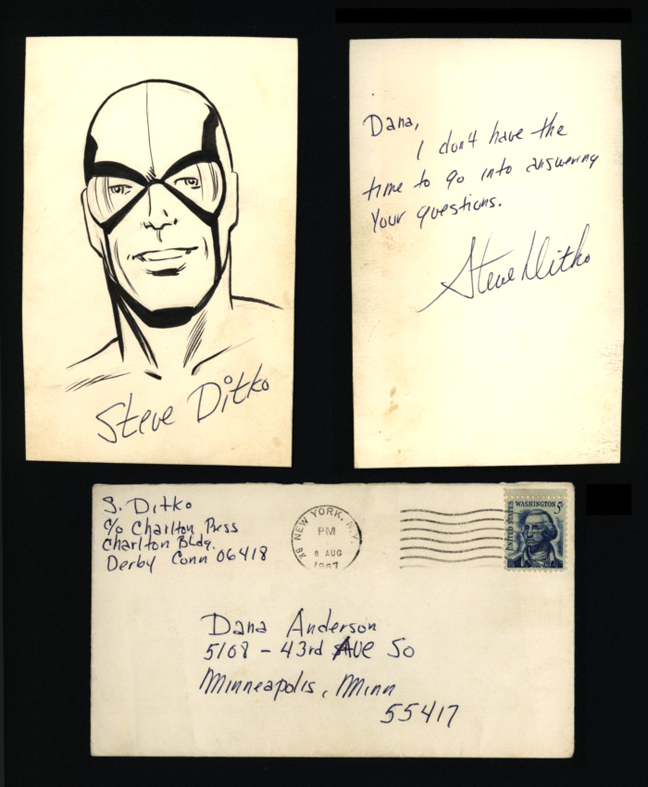 Steve Ditko
Dana,
I don't have the
time to go into answering
Your questions.
Steve Ditko
S. Ditko
c/o Charlton Press
Charlton Bldg.
Derby Conn 06418
NEW YORK, N.Y.
PM
8 AUG
1967
UNITED STATES
WASHINGTON 5¢
Dana Anderson
5108 - 43rd Ave So
Minneapolis, Minn
55417